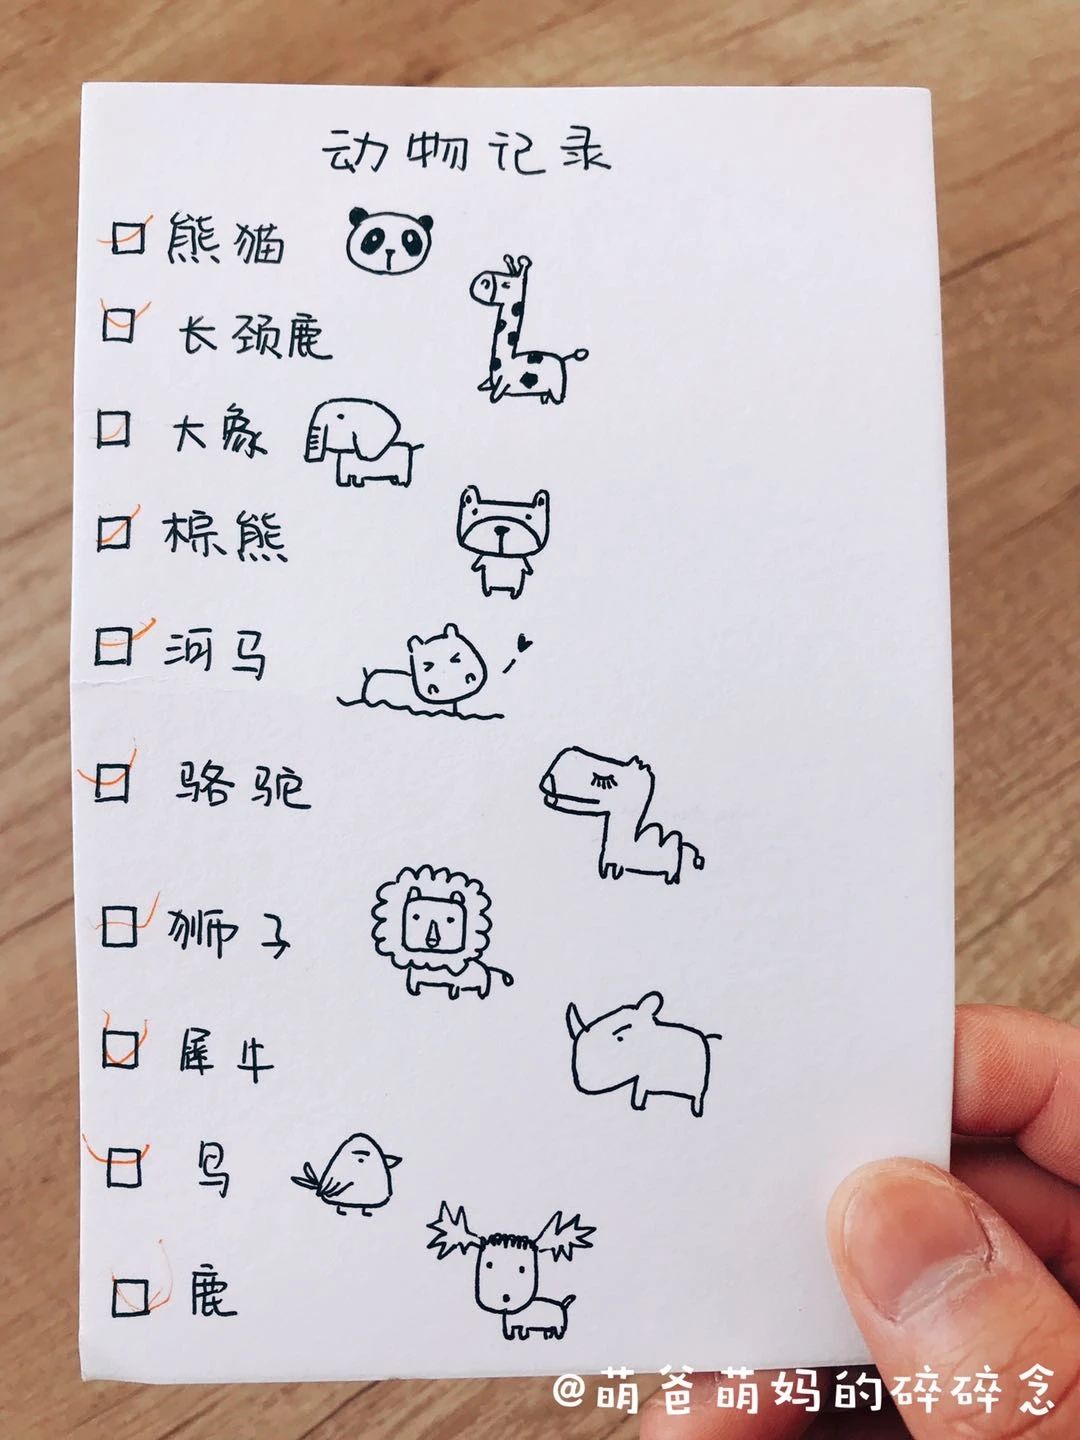 动物记录
熊猫
长颈鹿
大象
棕熊
河马
骆驼
狮子
犀牛
鸟
鹿
@萌爸萌妈的碎碎念